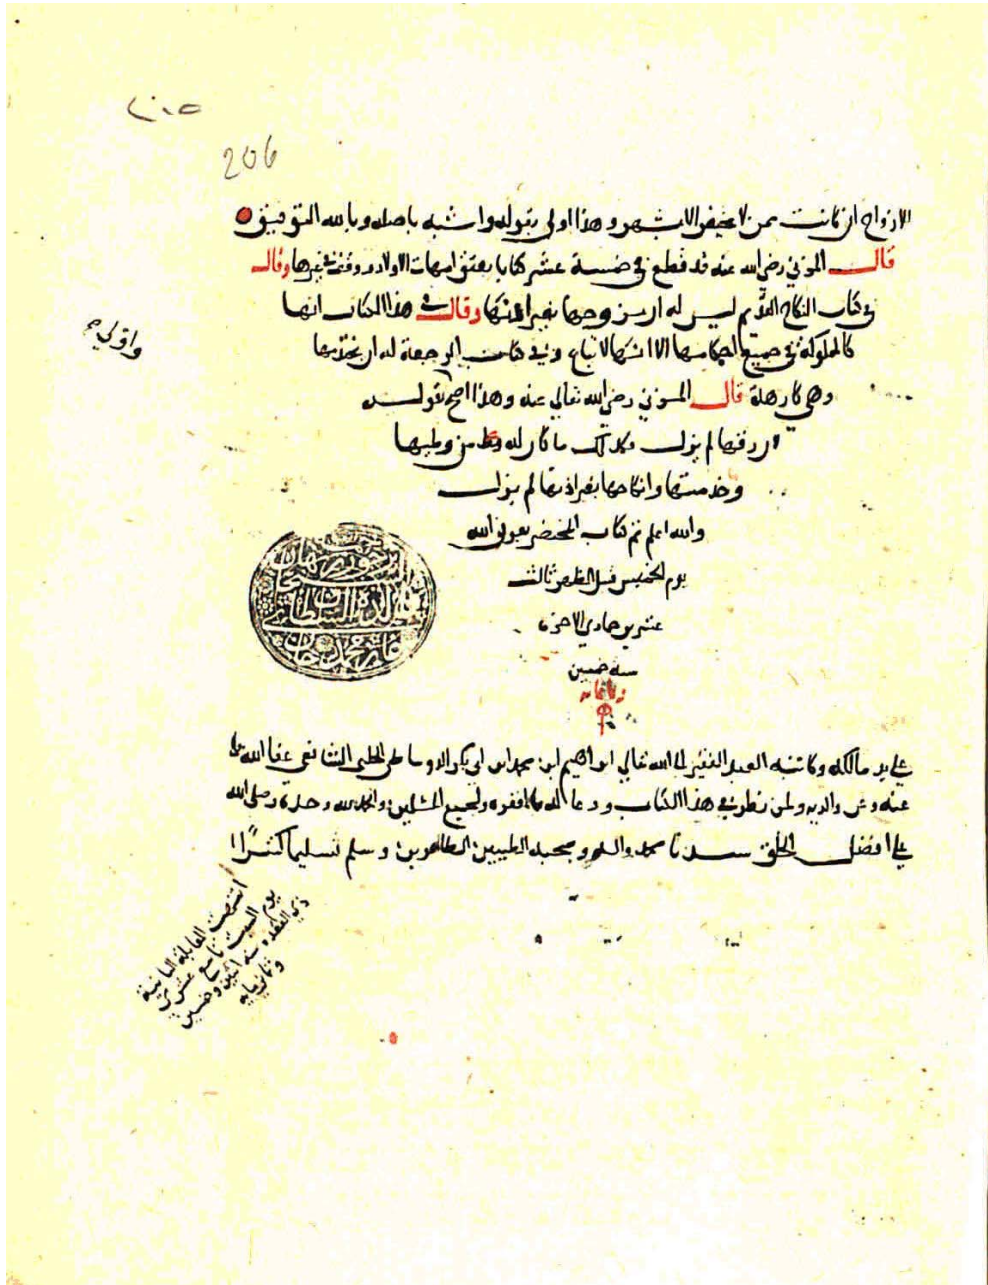 ٢٠٥
206
الازواج ان كانت ممن لا يحيض الا بشهر وهذا اولى بقوله واشبه باصله وبالله التوفيق
قال المزني رضي الله عنه قد قطع في خمسة عشر كتابا بعتق امهات الاولاد ووقف في غيرها وقال
في كتاب النكاح القديم ليس له ان يزوجها بغير اذنها وقال في هذا الكتاب انها
كالمملوكة في جميع احكامها الا انها لا تباع وفي كتاب الرجعة له ان يختدمها
وهي كارهة قال المزني رضي الله تعالى عنه وهذا اصح بقوله
ان رقها لم يزل فكذلك ما كان له من وطيها
وخدمتها وانكاحها بغير اذنها لم يزل
والله اعلم تم كتاب المختصر بعون الله
يوم الخميس قبل الظهر ثالث
عشرين جمادي الاخرة
سنة خمسين
وثمانمايه
واولى
السلطان
محمد خان
على يد مالكه وكاتبه العبد الفقير الى الله تعالى ابراهيم بن محمد بن ابي بكر الحلبي الشافعي عفا الله
عنه وعن والديه ولمن نظر في هذا الكتاب ودعا له بالمغفره ولجميع المسلمين والحمد لله وحده وصلى الله
على افضل الخلق سيدنا محمد واله وصحبه الطيبين الطاهرين وسلم تسليما كثيرا
انتهت المقابلة الثانية
يوم السبت تاسع عشري
ذي القعده سنه اثنين وخمسين
وثمانمايه